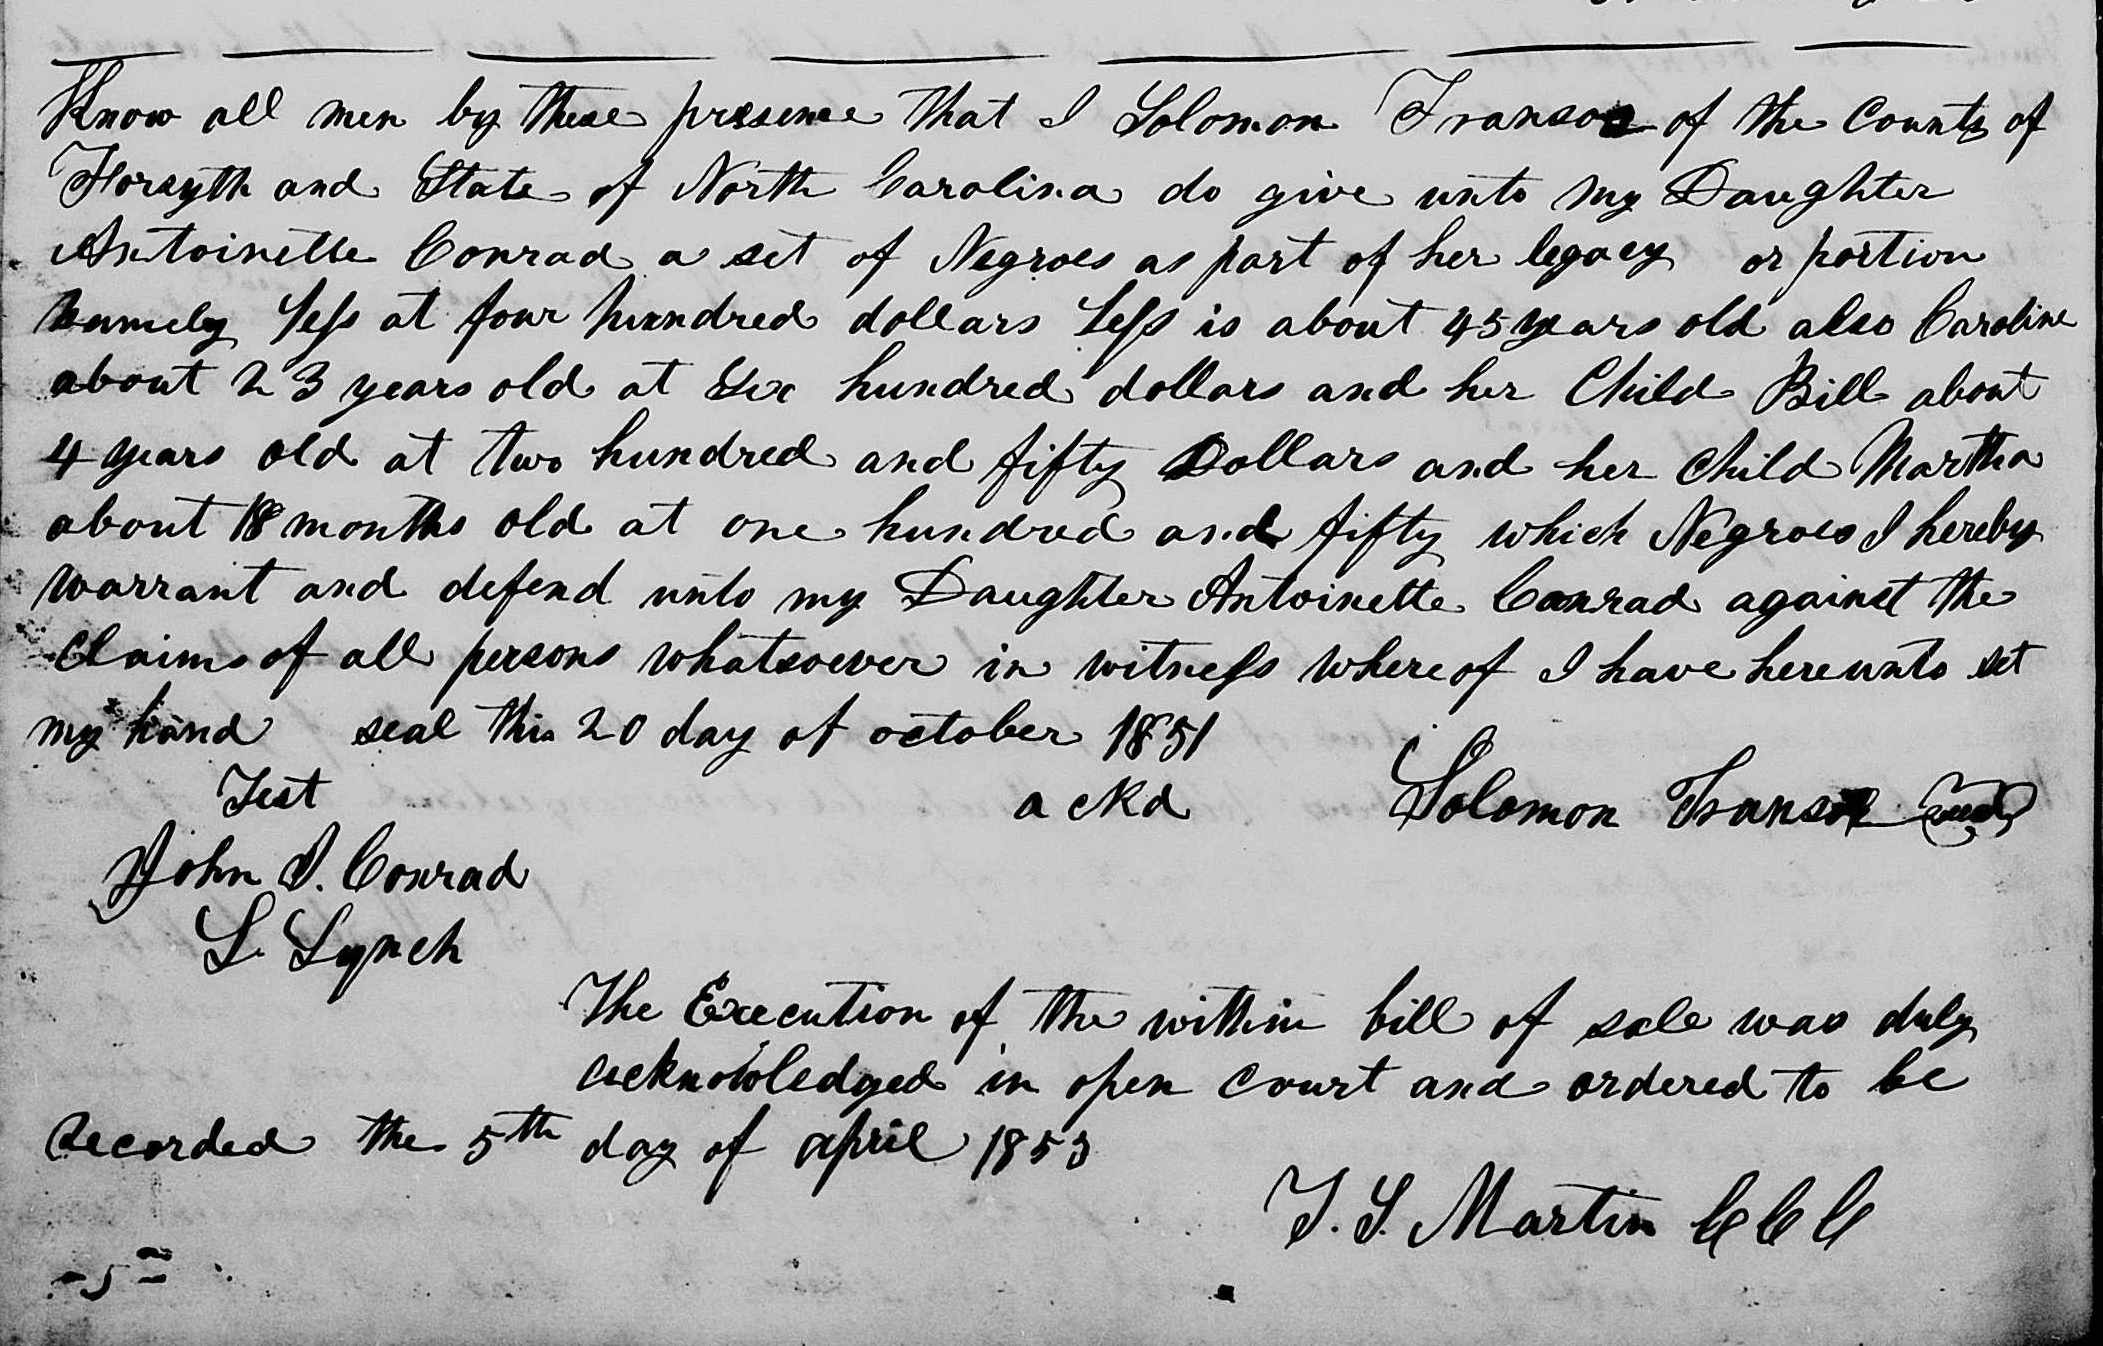 Know all men by these presence that I Solomon Transou of the County of
Forsyth and State of North Carolina do give unto my Daughter
Antoinette Conrad a set of Negroes as part of her legacy or portion
namely Jess at four hundred dollars Jess is about 45 years old also Caroline
about 23 years old at Six hundred dollars and her Child Bill about
4 years old at two hundred and fifty Dollars and her child Martha
about 18 months old at one hundred and fifty which Negroes I hereby
warrant and defend unto my Daughter Antoinette Conrad against the
Claims of all persons whatsoever in witness whereof I have hereunto set
my hand seal this 20 day of october 1851
Test ackd Solomon Transou Seal
John J. Conrad
L. Lynch
The Execution of the within bill of sale was duly
acknowledged in open court and ordered to be
recorded the 5th day of april 1853
T. S. Martin C C C